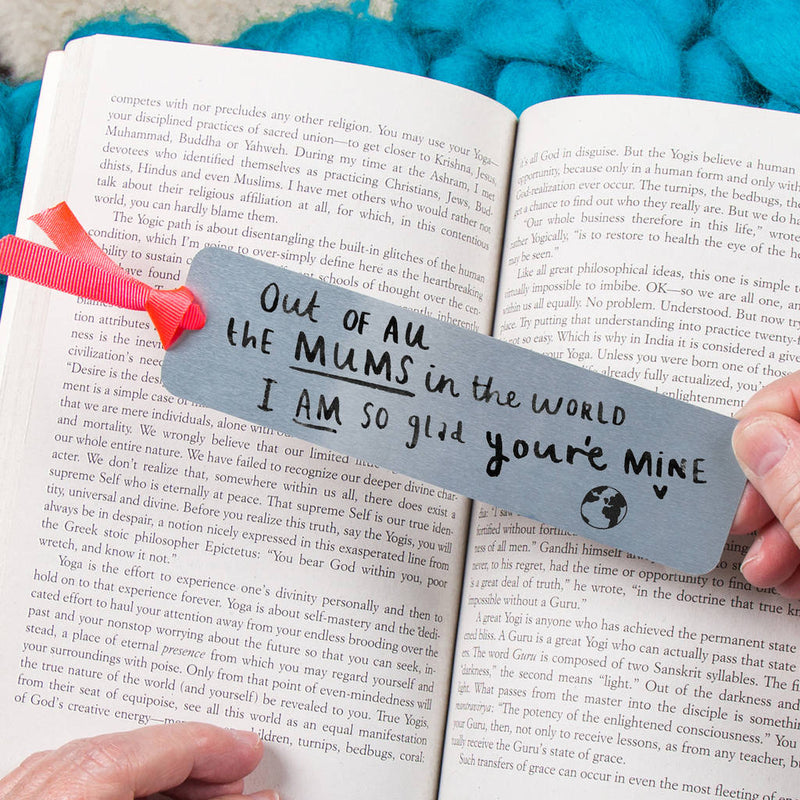 competes with nor precludes any other religion. You may use your Yoga—
your disciplined practices of sacred union—to get closer to Krishna, Jesus,
Muhammad, Buddha or Yahweh. During my time at the Ashram, I met
devotees who identified themselves as practicing Christians, Jews, Bud-
dhists, Hindus and even Muslims. I have met others who would rather not
talk about their religious affiliation at all, for which, in this contentious
world, you can hardly blame them.
The Yogic path is about disentangling the built-in glitches of the human
condition, which I'm going to over-simply define here as the heartbreaking
ability to sustain schools of thought over the cen-
have found
inherently
tion attributes
ness is the inevi
civilization's
"Desire is the des
ment is a simple case of
that we are mere individuals, alone with
and mortality. We wrongly believe that our limited
our whole entire nature. We have failed to recognize our deeper divine char-
acter. We don't realize that, somewhere within us all, there does exist a
supreme Self who is eternally at peace. That supreme Self is our true iden-
tity, universal and divine. Before you realize this truth, say the Yogis, you will
always be in despair, a notion nicely expressed in this exasperated line from
the Greek stoic philosopher Epictetus: "You bear God within you, poor
wretch, and know it not."
Yoga is the effort to experience one's divinity personally and then to
hold on to that experience forever. Yoga is about self-mastery and the dedi-
cated effort to haul your attention away from your endless brooding over the
past and your nonstop worrying about the future so that you can seek, in-
stead, a place of eternal presence from which you may regard yourself and
your surroundings with poise. Only from that point of even-mindedness will
the true nature of the world (and yourself) be revealed to you. True Yogis,
from their seat of equipoise, see all this world as an equal manifestation
of God's creative energy—men, women, children, turnips, bedbugs, coral:
Out OF All
the MUMS in the WORLD
I AM so glad you're MINE
it's all God in disguise. But the Yogis believe a human
opportunity, because only in a human form and only with
God-realization ever occur. The turnips, the bedbugs, the
get a chance to find out who they really are. But we do ha
"Our whole business therefore in this life," wrote
rather Yogically, "is to restore to health the eye of the he
may be seen."
Like all great philosophical ideas, this one is simple t
virtually impossible to imbibe. OK—so we are all one, an
within us all equally. No problem. Understood. But now try
place. Try putting that understanding into practice twenty-f
not so easy. Which is why in India it is considered a give
your Yoga. Unless you were born one of those
already fully actualized, you'
"I saw
fortified without
ness of all men." Gandhi himself
never, to his regret, had the time or opportunity to
is a great deal of truth," he wrote, "in the doctrine that true kn
impossible without a Guru."
A great Yogi is anyone who has achieved the permanent state
ened bliss. A Guru is a great Yogi who can actually pass that state
ers. The word Guru is composed of two Sanskrit syllables. The fi
"darkness," the second means "light." Out of the darkness and
light. What passes from the master into the disciple is somethin
mantravirya: "The potency of the enlightened consciousness." You
your Guru, then, not only to receive lessons, as from any teacher, bu
tually receive the Guru's state of grace.
Such transfers of grace can occur in even the most fleeting of en